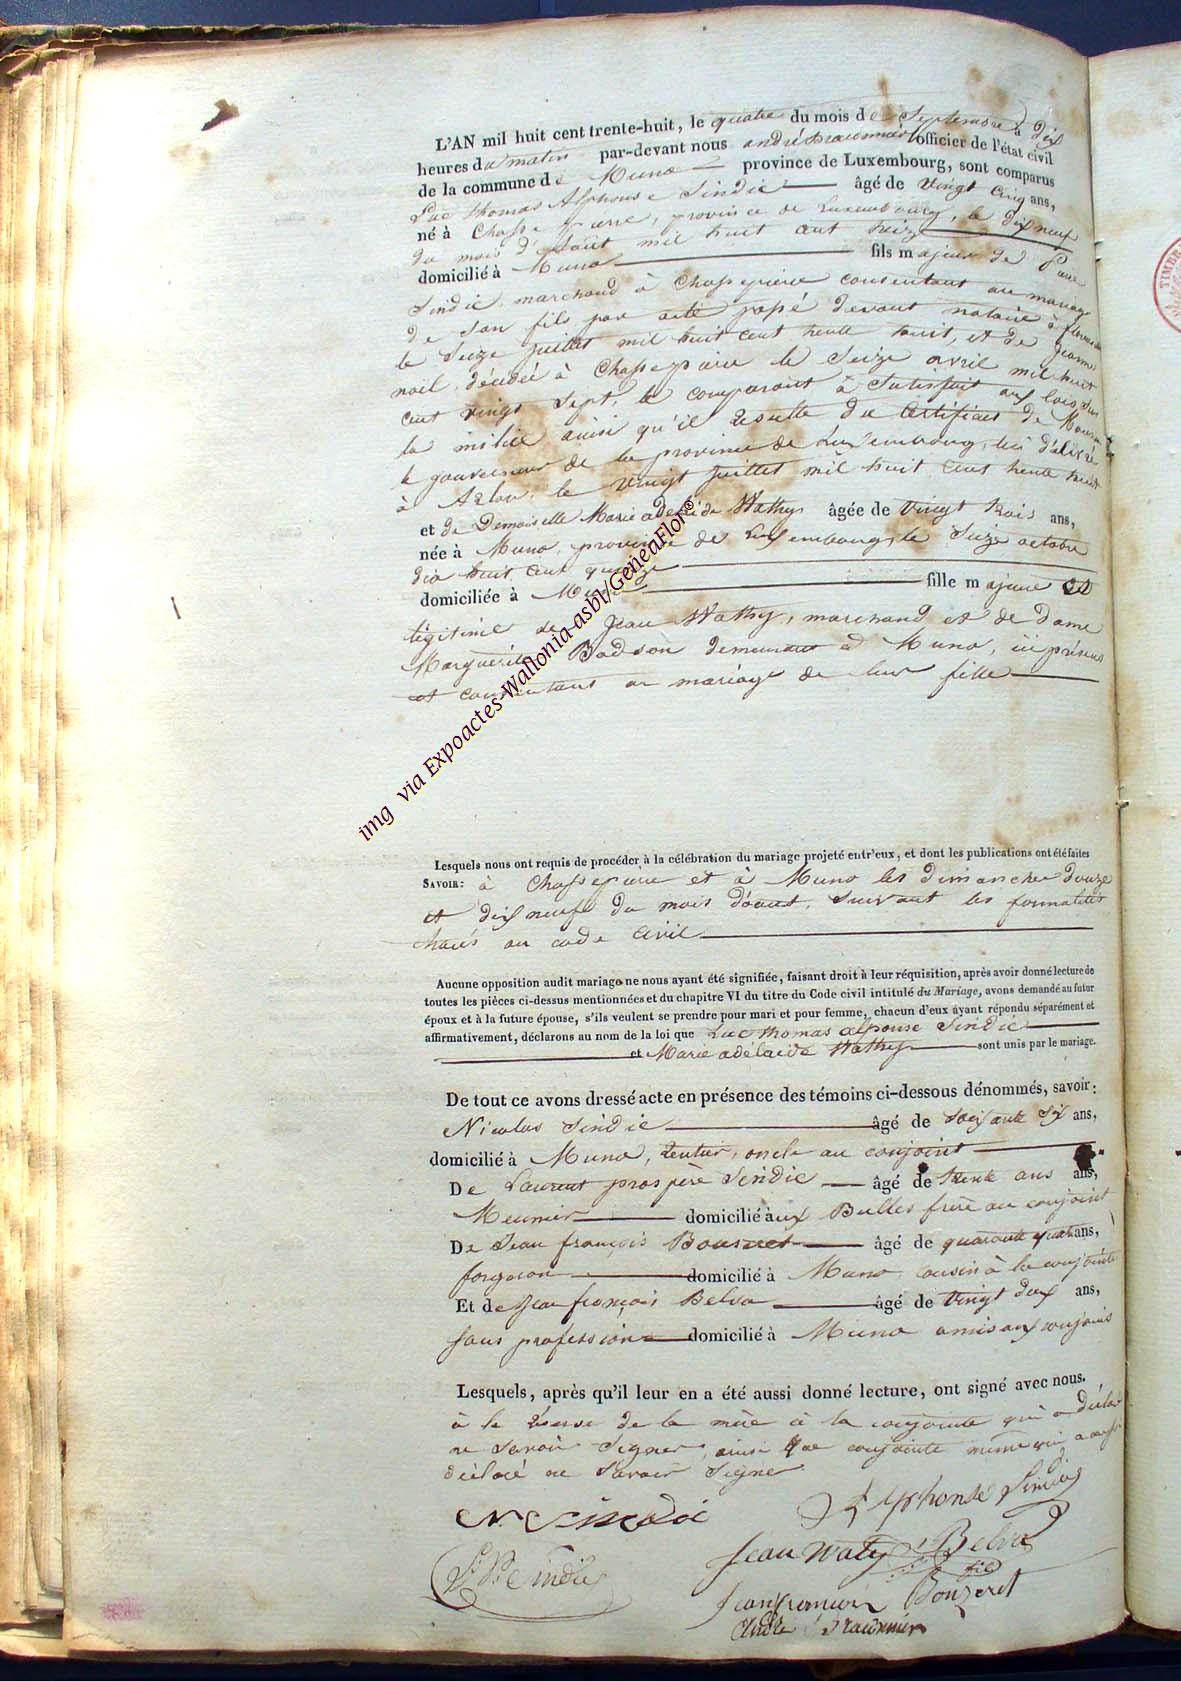 L'AN mil huit cent trente-huit, le quatre du mois de Septembre à dix
heures du matin par-devant nous andré officier de l'état civil
de la commune de Muno province de Luxembourg, sont comparus
Luc thomas Alphonse Sindic âgé de vingt cinq ans,
né à Chassepierre, province de Luxembourg, le dix neuf
du mois d'août mil huit cent treize
domicilié à Muno fils majeur de
Sindic, marchand à Chassepierre consentant au mariage
de son fils par acte passé devant notaire à
le Seize Juillet mil huit cent trente huit, et de Jeanne
noël, décédée à Chassepierre le Seize avril mil huit
cent vingt sept, le comparant à Satisfait aux lois sur
la milice ainsi qu'il résulte du Certificat de
le gouverneur de la province de Luxembourg, lui délivré
à Arlon, le vingt Juillet mil huit cent trente huit
et de Demoiselle Marie adelaide Wathy âgée de vingt trois ans,
née à Muno, province de Luxembourg, le Seize octobre
dix huit cent quinze
domiciliée à Muno fille majeure et
légitime de Jean Wathy, marchand et de Dame
Marguerite Bodson demeurant à Muno, ici présens
et consentans au mariage de leur fille
TIMBRE
img via Expoactes-Wallonia-asbl/GeneaFlor©
Lesquels nous ont requis de procéder à la célébration du mariage projeté entr'eux, et dont les publications ont été faites
SAVOIR: à Chassepierre et à Muno les dimanches douze
et dix neuf du mois d'août, suivant les formalités
au code civil
Aucune opposition audit mariage ne nous ayant été signifiée, faisant droit à leur réquisition, après avoir donné lecture de
toutes les pièces ci-dessus mentionnées et du chapitre VI du titre du Code civil intitulé du Mariage, avons demandé au futur
époux et à la future épouse, s'ils veulent se prendre pour mari et pour femme, chacun d'eux ayant répondu séparément et
affirmativement, déclarons au nom de la loi que Luc thomas alphonse Sindic
et Marie adélaïde Wathy sont unis par le mariage.
De tout ce avons dressé acte en présence des témoins ci-dessous dénommés, savoir:
Nicolas Sindic âgé de soixante six ans,
domicilié à Muno, rentier, oncle au conjoint
De Laurent prospère Sindic âgé de trente ans ans,
Meunier domicilié aux Bulles frère au conjoint
De Jean françois Bouzeret âgé de quarante quatre ans,
forgeron domicilié à Muno cousin à la conjointe
Et de Jean françois Belva âgé de vingt deux ans,
sans profession domicilié à Muno amis aux conjoints
Lesquels, après qu'il leur en a été aussi donné lecture, ont signé avec nous.
à la réserve de la mère à la conjointe qui a déclaré
ne savoir signer, ainsi que conjointe même qui a aussi
déclaré ne savoir signer
N Sindic Alphonse Sindic
L. P. Sindic Jean Waty Belva
Jean françois Bouzeret
André